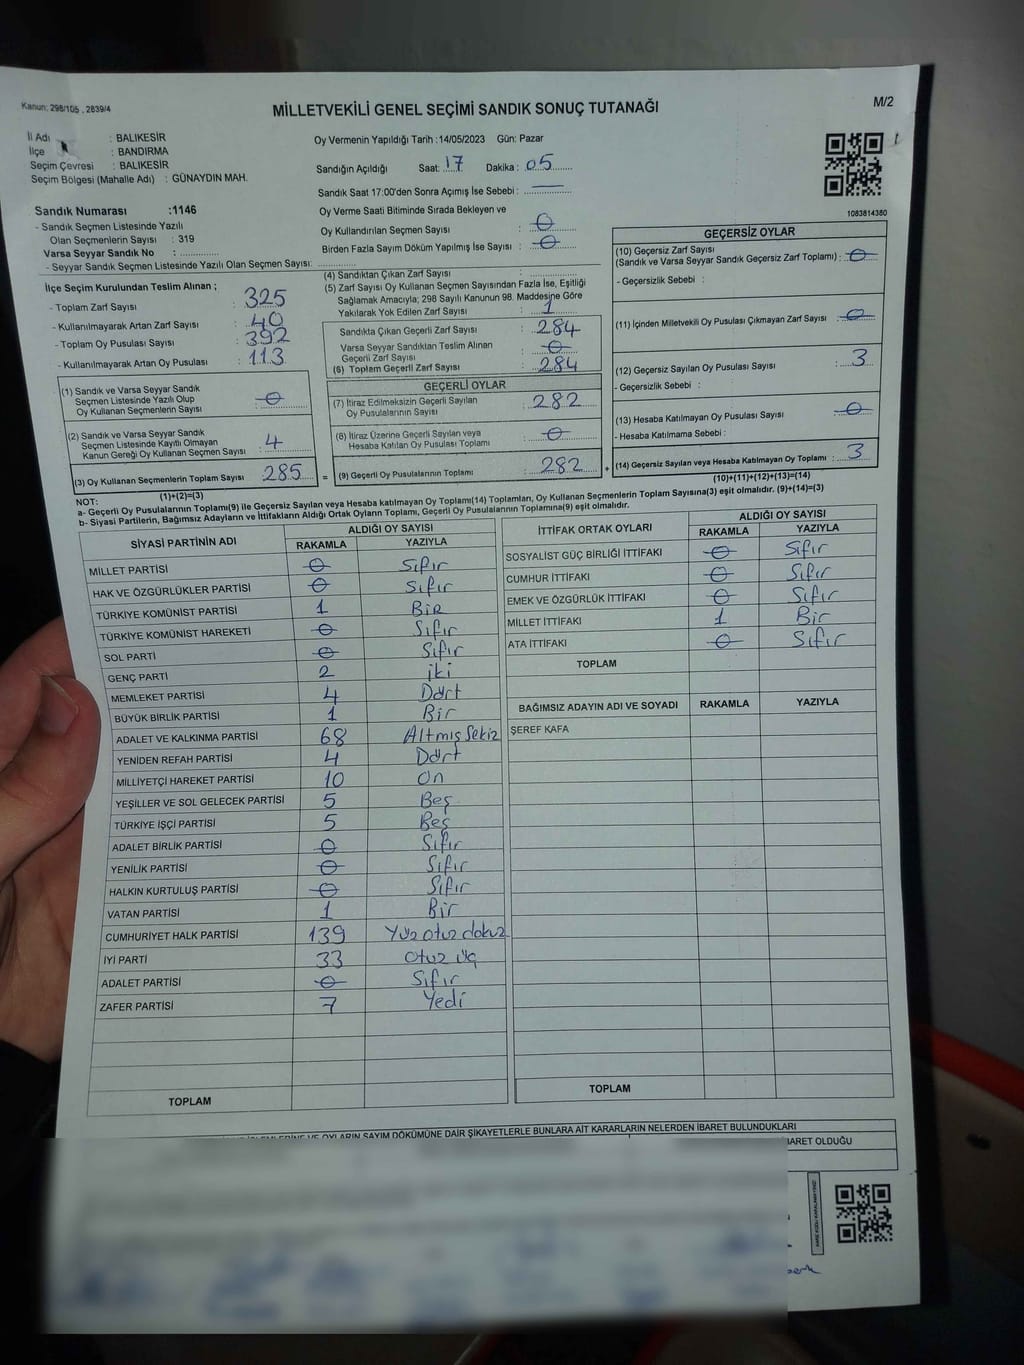 Kanun: 298/105 , 2839/4
MİLLETVEKİLİ GENEL SEÇİMİ SANDIK SONUÇ TUTANAĞI
M/2
İl Adı : BALIKESİR
İlçe : BANDIRMA
Seçim Çevresi : BALIKESİR
Seçim Bölgesi (Mahalle Adı) : GÜNAYDIN MAH.
Oy Vermenin Yapıldığı Tarih :14/05/2023 Gün: Pazar
Sandığın Açıldığı Saat: 17 Dakika : 05
Sandık Saat 17:00'den Sonra Açımış İse Sebebi : —
Oy Verme Saati Bitiminde Sırada Bekleyen ve
Oy Kullandırılan Seçmen Sayısı : 0
Birden Fazla Sayım Döküm Yapılmış İse Sayısı : 0
1083814380
Sandık Numarası :1146
- Sandık Seçmen Listesinde Yazılı
Olan Seçmenlerin Sayısı : 319
Varsa Seyyar Sandık No : ..............
- Seyyar Sandık Seçmen Listesinde Yazılı Olan Seçmen Sayısı: ..............
İlçe Seçim Kurulundan Teslim Alınan ;
- Toplam Zarf Sayısı : 325
- Kullanılmayarak Artan Zarf Sayısı : 40
- Toplam Oy Pusulası Sayısı : 392
- Kullanılmayarak Artan Oy Pusulası : 113
(1) Sandık ve Varsa Seyyar Sandık
Seçmen Listesinde Yazılı Olup
Oy Kullanan Seçmenlerin Sayısı : 0
(2) Sandık ve Varsa Seyyar Sandık
Seçmen Listesinde Kayıtlı Olmayan
Kanun Gereği Oy Kullanan Seçmen Sayısı : 4
(3) Oy Kullanan Seçmenlerin Toplam Sayısı : 285
(1)+(2)=(3)
(4) Sandıktan Çıkan Zarf Sayısı : ..............
(5) Zarf Sayısı Oy Kullanan Seçmen Sayısından Fazla İse, Eşitliği
Sağlamak Amacıyla; 298 Sayılı Kanunun 98. Maddesine Göre
Yakılarak Yok Edilen Zarf Sayısı : 1
Sandıkta Çıkan Geçerli Zarf Sayısı : 284
Varsa Seyyar Sandıktan Teslim Alınan
Geçerli Zarf Sayısı : 0
(6) Toplam Geçerli Zarf Sayısı : 284
GEÇERLİ OYLAR
(7) İtiraz Edilmeksizin Geçerli Sayılan
Oy Pusulalarının Sayısı : 282
(8) İtiraz Üzerine Geçerli Sayılan veya
Hesaba Katılan Oy Pusulası Toplamı : 0
= (9) Geçerli Oy Pusulalarının Toplamı : 282 +
GEÇERSİZ OYLAR
(10) Geçersiz Zarf Sayısı
(Sandık ve Varsa Seyyar Sandık Geçersiz Zarf Toplamı) : 0
- Geçersizlik Sebebi :
(11) İçinden Milletvekili Oy Pusulası Çıkmayan Zarf Sayısı : 0
(12) Geçersiz Sayılan Oy Pusulası Sayısı : 3
- Geçersizlik Sebebi :
(13) Hesaba Katılmayan Oy Pusulası Sayısı : 0
- Hesaba Katılmama Sebebi :
(14) Geçersiz Sayılan veya Hesaba Katılmayan Oy Toplamı : 3
(10)+(11)+(12)+(13)=(14)
NOT:
a- Geçerli Oy Pusulalarının Toplamı(9) ile Geçersiz Sayılan veya Hesaba katılmayan Oy Toplamı(14) Toplamları, Oy Kullanan Seçmenlerin Toplam Sayısına(3) eşit olmalıdır. (9)+(14)=(3)
b- Siyasi Partilerin, Bağımsız Adayların ve İttifakların Aldığı Ortak Oyların Toplamı, Geçerli Oy Pusulalarının Toplamına(9) eşit olmalıdır.
SİYASİ PARTİNİN ADI ALDIĞI OY SAYISI
RAKAMLA YAZIYLA
MİLLET PARTİSİ 0 Sıfır
HAK VE ÖZGÜRLÜKLER PARTİSİ 0 Sıfır
TÜRKİYE KOMÜNİST PARTİSİ 1 Bir
TÜRKİYE KOMÜNİST HAREKETİ 0 Sıfır
SOL PARTİ 0 Sıfır
GENÇ PARTİ 2 iki
MEMLEKET PARTİSİ 4 Dört
BÜYÜK BİRLİK PARTİSİ 1 Bir
ADALET VE KALKINMA PARTİSİ 68 Altmış Sekiz
YENİDEN REFAH PARTİSİ 4 Dört
MİLLİYETÇİ HAREKET PARTİSİ 10 On
YEŞİLLER VE SOL GELECEK PARTİSİ 5 Beş
TÜRKİYE İŞÇİ PARTİSİ 5 Beş
ADALET BİRLİK PARTİSİ 0 Sıfır
YENİLİK PARTİSİ 0 Sıfır
HALKIN KURTULUŞ PARTİSİ 0 Sıfır
VATAN PARTİSİ 1 Bir
CUMHURİYET HALK PARTİSİ 139 Yüz otuz dokuz
İYİ PARTİ 33 otuz üç
ADALET PARTİSİ 0 Sıfır
ZAFER PARTİSİ 7 Yedi
TOPLAM
İTTİFAK ORTAK OYLARI ALDIĞI OY SAYISI
RAKAMLA YAZIYLA
SOSYALİST GÜÇ BİRLİĞİ İTTİFAKI 0 Sıfır
CUMHUR İTTİFAKI 0 Sıfır
EMEK VE ÖZGÜRLÜK İTTİFAKI 0 Sıfır
MİLLET İTTİFAKI 1 Bir
ATA İTTİFAKI 0 Sıfır
TOPLAM
BAĞIMSIZ ADAYIN ADI VE SOYADI RAKAMLA YAZIYLA
ŞEREF KAFA
TOPLAM
VE OYLARIN SAYIM DÖKÜMÜNE DAİR ŞİKAYETLERLE BUNLARA AİT KARARLARIN NELERDEN İBARET BULUNDUKLARI
İBARET OLDUĞU